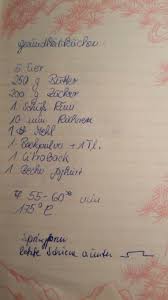 Gesundheitskuchen
5 Eier
250 g Butter
200 g Zucker
1 Schuß Rum
10 min Rühren
1 Mehl
1 Backpulver + 1 Tl.
1 CitroBack
1 Becher Joghurt
55-60 min
175°C
Springform
letzte Schiene unten